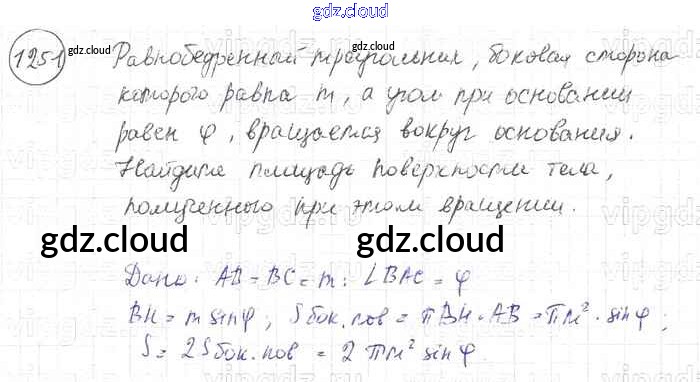 gdz.cloud
1251 Равнобедренный треугольник, боковая сторона
gdz.cloud
которого равна m, а угол при основании
равен φ, вращается вокруг основания.
Найдите площадь поверхности тела,
полученного при этом вращении.
gdz.cloud gdz.cloud
Дано: AB = BC = m; ∠BAC = φ
BH = m sinφ; Sбок.пов = πBH·AB = πm²·sinφ;
S = 2Sбок.пов = 2πm² sinφ.